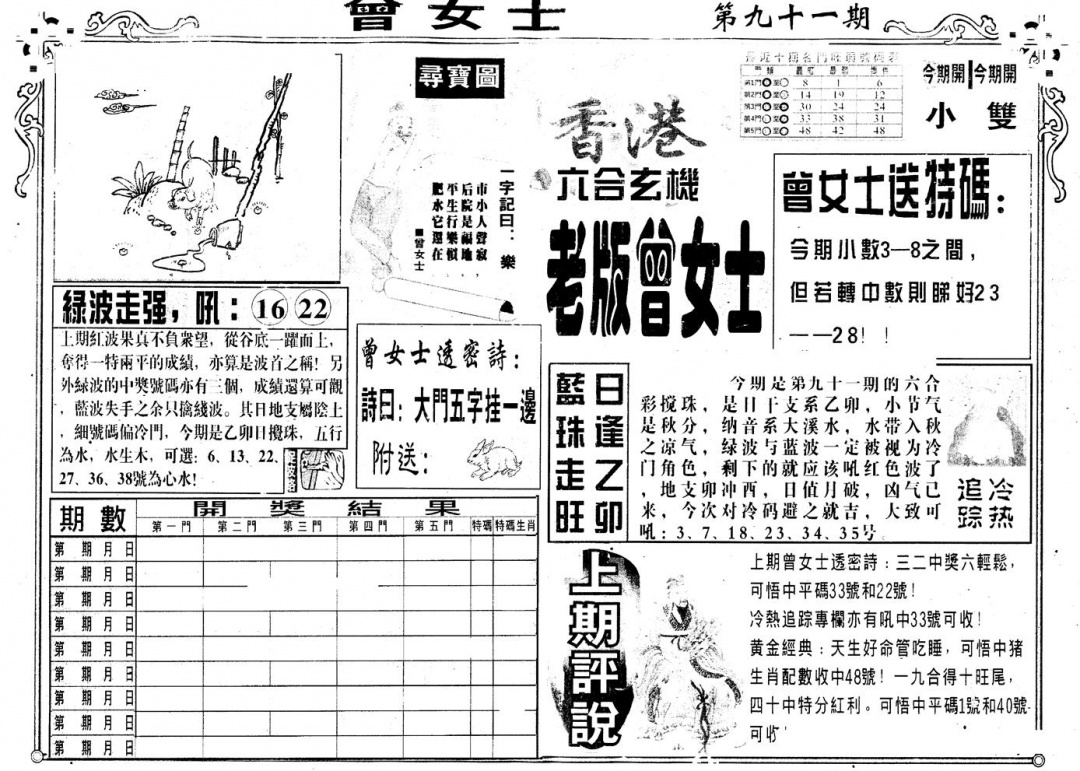 曾女士
第九十一期
尋寶圖
一字記曰：樂
市小人聲寂，
后院是福地，
平生行樂慎，
肥水它還在
■曾女士
綠波走强，吼：16 22
上期紅波果真不負衆望，從谷底一躍而上，
奪得一特兩平的成績，亦算是波首之稱！另
外綠波的中獎號碼亦有三個，成績還算可觀
，藍波失手之余只擒綫波。其日地支屬陰上
，細號碼偏冷門，今期是乙卯日攪珠，五行
為水，水生木，可選：6、13、22、
27、36、38號為心水！
曾女士透密詩：
詩曰：大門五字挂一邊
附送：
期數
開獎結果
第一門 第二門 第三門 第四門 第五門 特碼 特碼生肖
第 期 月 日
第 期 月 日
第 期 月 日
第 期 月 日
第 期 月 日
第 期 月 日
第 期 月 日
第 期 月 日
第 期 月 日
香港
六合玄機
老版曾女士
8 1 6
14 19 12
30 24 24
33 38 31
48 42 48
今期開 今期開
小 雙
曾女士送特碼：
今期小數3—8之間，
但若轉中數則睇好23
——28！！
日逢乙卯
藍珠走旺
今期是第九十一期的六合
彩搅珠，是日干支系乙卯，小节气
是秋分，纳音系大溪水，水带入秋
之凉气，绿波与蓝波一定被视为冷
门角色，剩下的就应该吼红色波了
，地支卯冲西，日值月破，凶气已
来，今次对冷码避之就吉，大致可
吼：3、7、18、23、34、35号
冷热
追踪
上期評說
上期曾女士透密詩：三二中獎六輕鬆，
可悟中平碼33號和22號！
冷熱追踪專欄亦有吼中33號可收！
黄金經典：天生好命管吃睡，可悟中猪
生肖配數收中48號！一九合得十旺尾，
四十中特分紅利。可悟中平碼1號和40號
可收